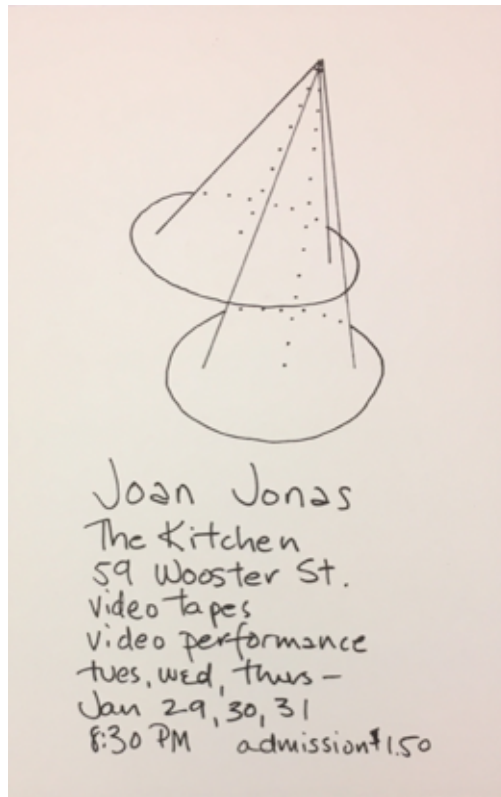 Joan Jonas
The Kitchen
59 Wooster St.
video tapes
video performance
tues, wed, thurs –
Jan 29, 30, 31
8:30 PM admission $1.50